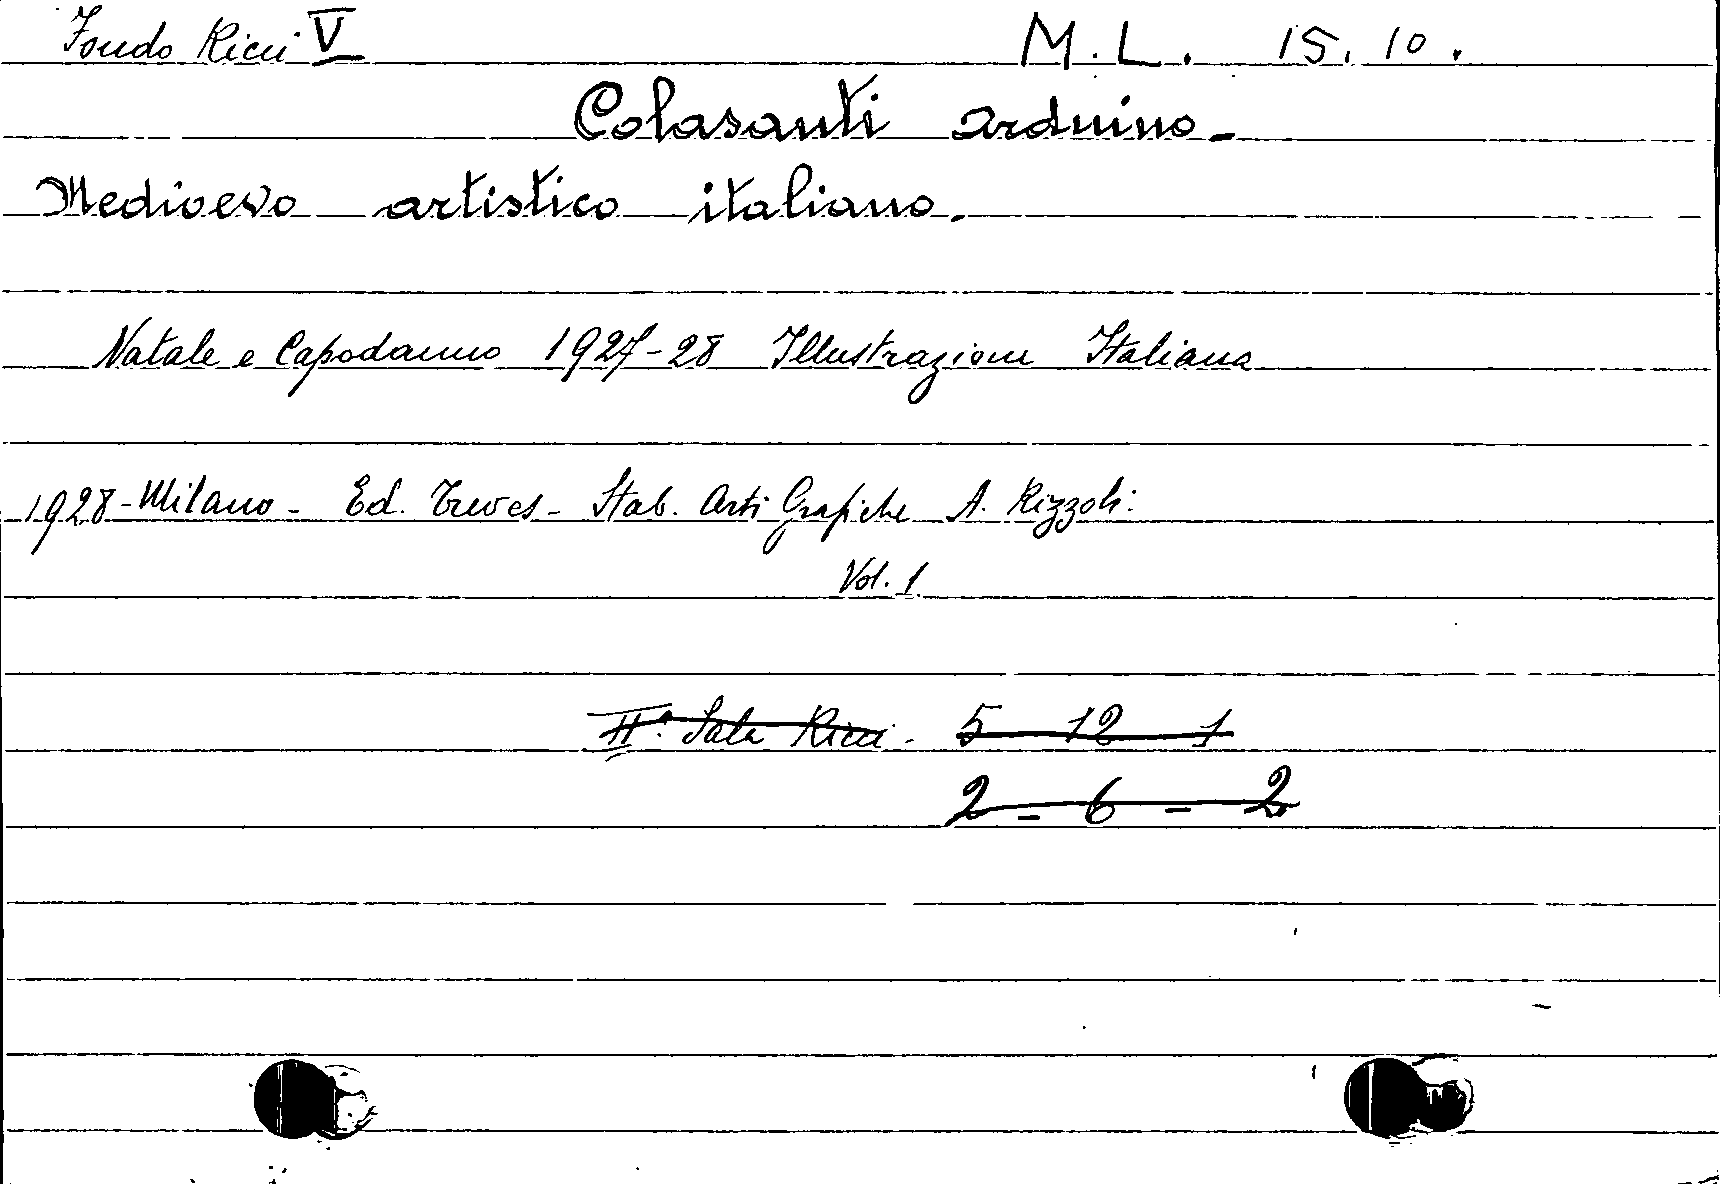 Fondo Ricci V M.L. 15.10.
Colasanti Arduino-
Medioevo artistico italiano.
Natale e Capodanno 1927-28 Illustrazione Italiana
1928-Milano- Ed. Treves- Stab. Arti Grafiche A. Rizzoli.
Vol. 1
IIª Sala Ricci- 5 12 1
2 - 6 - 2